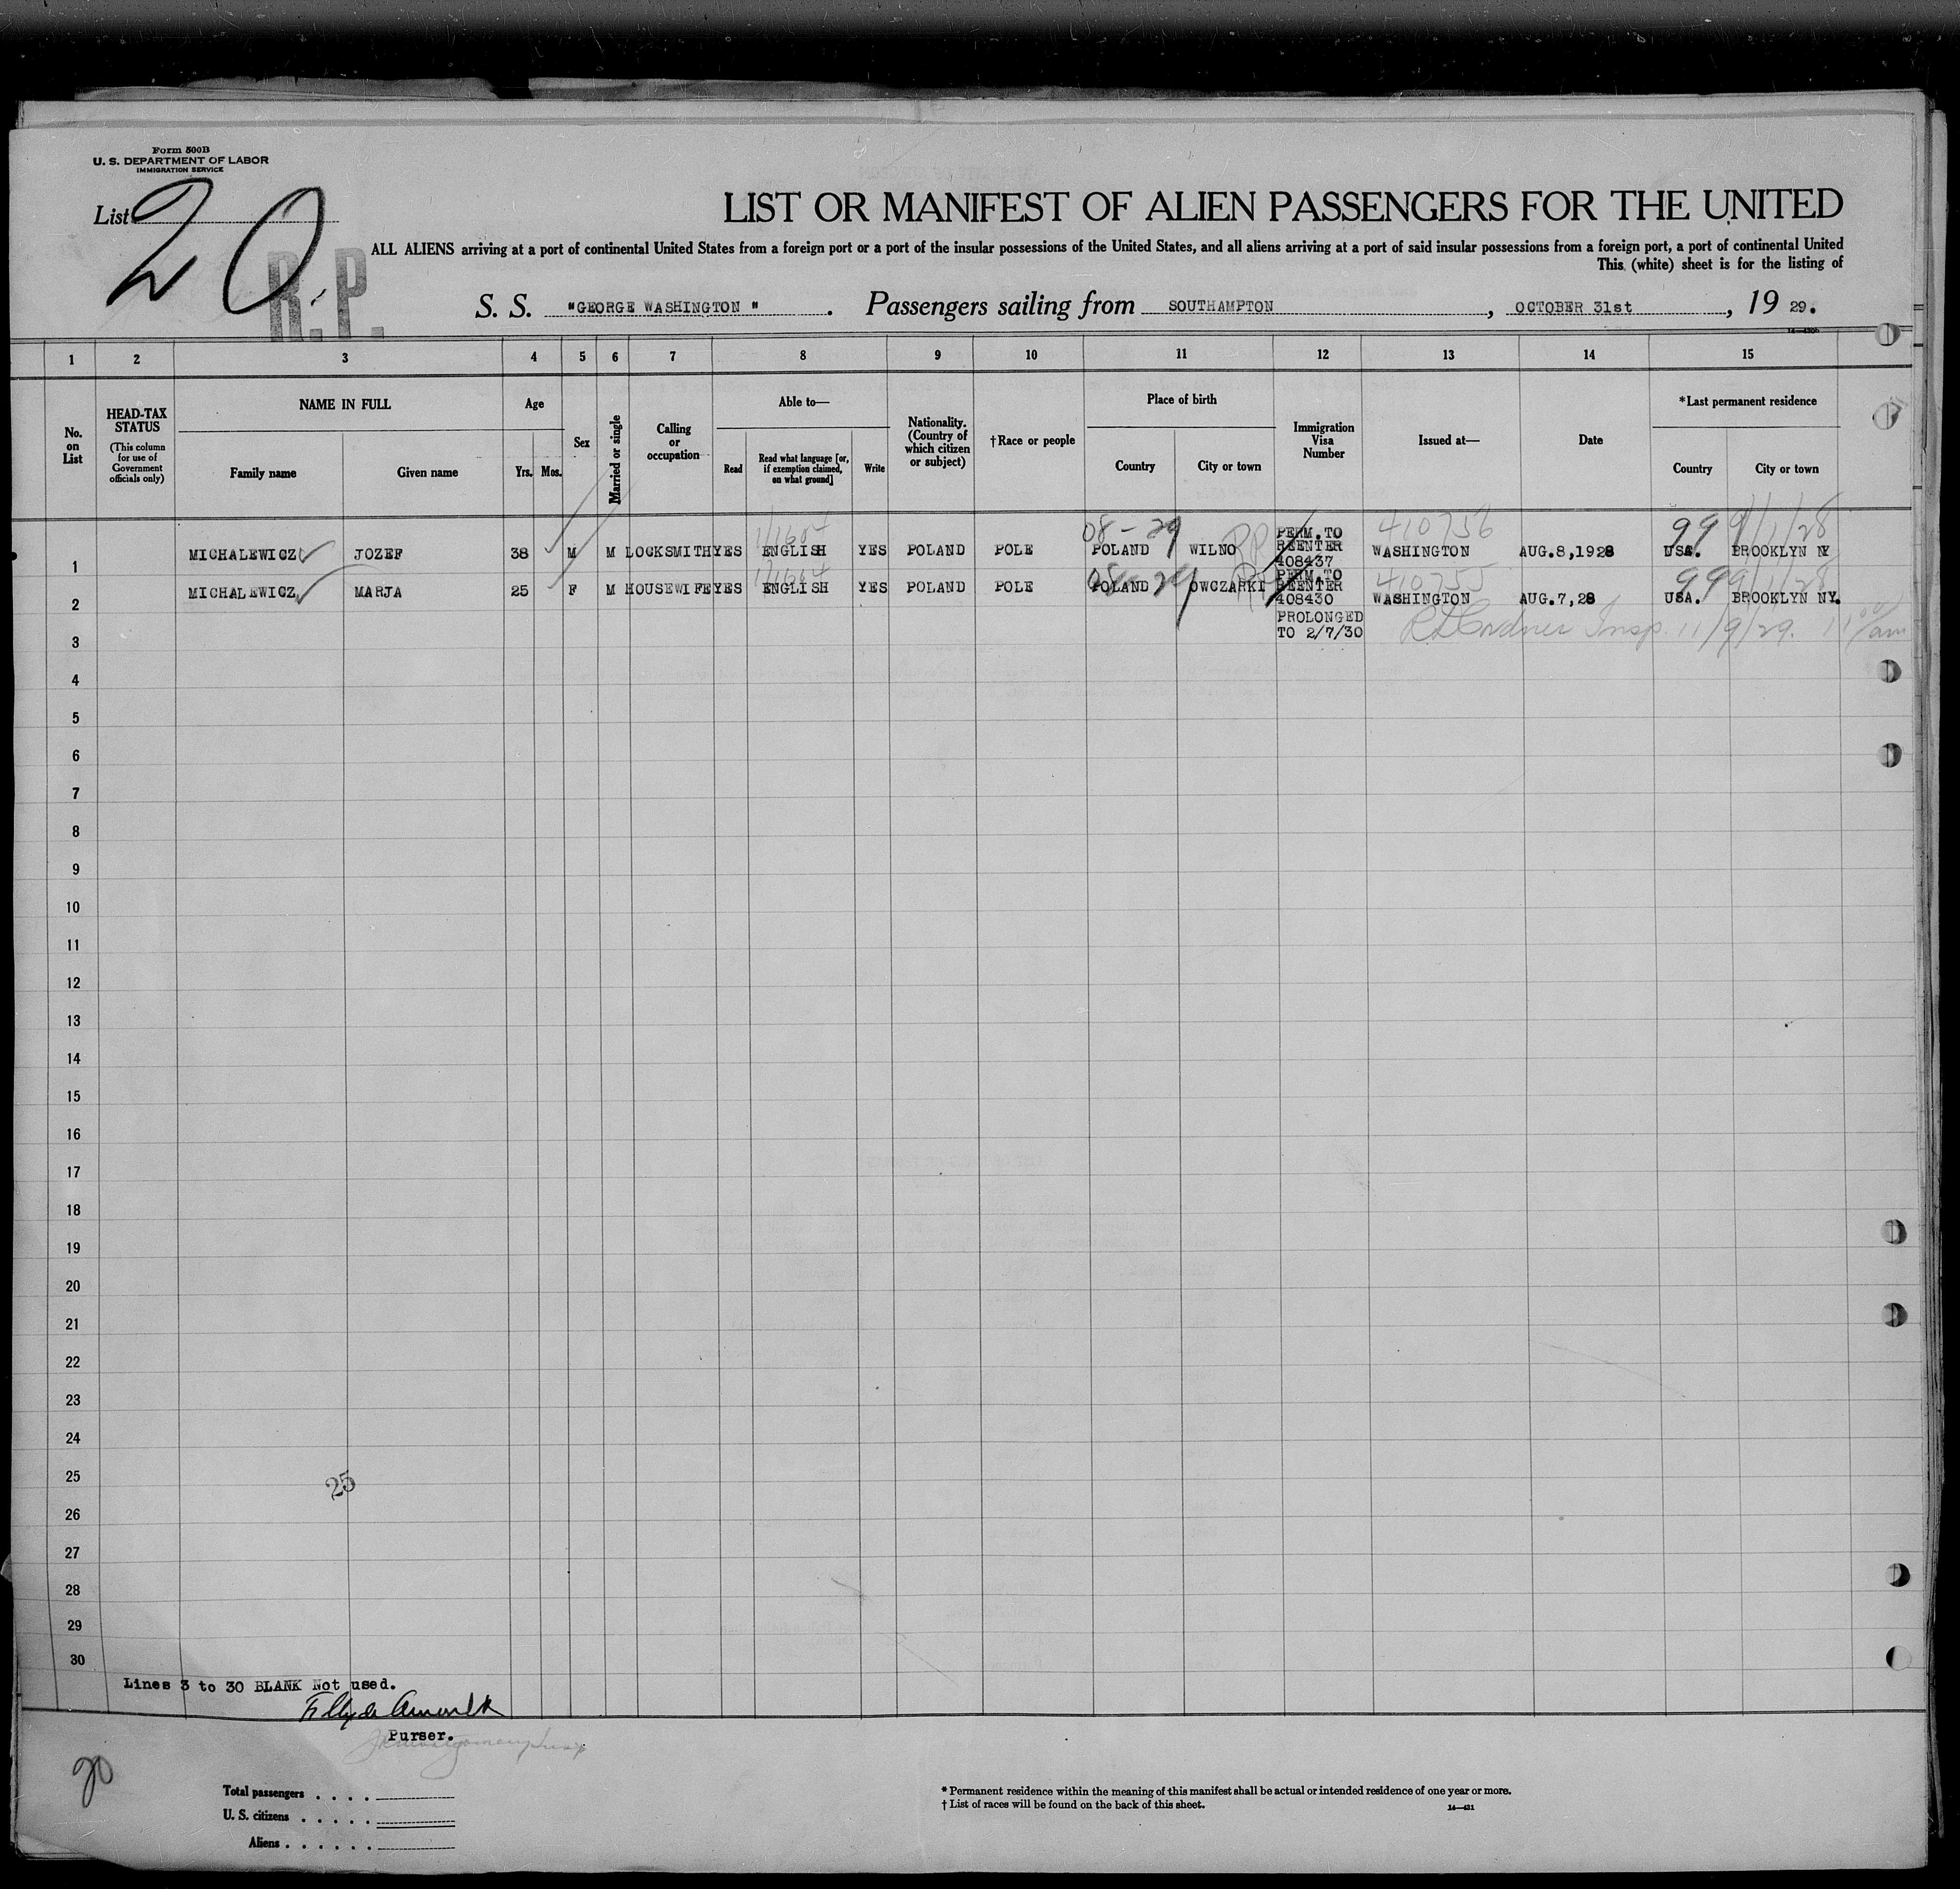 Form 500B
U. S. DEPARTMENT OF LABOR
IMMIGRATION SERVICE
List 20
R. P.
LIST OR MANIFEST OF ALIEN PASSENGERS FOR THE UNITED
ALL ALIENS arriving at a port of continental United States from a foreign port or a port of the insular possessions of the United States, and all aliens arriving at a port of said insular possessions from a foreign port, a port of continental United
This (white) sheet is for the listing of
S. S. "GEORGE WASHINGTON". Passengers sailing from SOUTHAMPTON, OCTOBER 31st, 19 29.
1 2 3 4 5 6 7 8 9 10 11 12 13 14 15
No. on List
HEAD-TAX STATUS
(This column for use of Government officials only)
NAME IN FULL
Family name Given name
Age
Yrs. Mos.
Sex
Married or single
Calling or occupation
Able to—
Read
Read what language [or, if exemption claimed, on what ground]
Write
Nationality. (Country of which citizen or subject)
†Race or people
Place of birth
Country City or town
Immigration Visa Number
Issued at—
Date
*Last permanent residence
Country City or town
08-29 RP 410756 99 9/1/28
1 MICHALEWICZ JOZEF 38 M M LOCKSMITH YES ENGLISH YES POLAND POLE POLAND WILNO PERM.TO REENTER 408437 WASHINGTON AUG.8,1928 USA. BROOKLYN NY
08-29 410755 99
2 MICHALEWICZ MARJA 25 F M HOUSEWIFE YES ENGLISH YES POLAND POLE POLAND OWCZARKI PERM.TO REENTER 408430 WASHINGTON AUG.7,28 USA. BROOKLYN NY.
PROLONGED TO 2/7/30
Insp. 11/9/29. 11 am
3
4
5
6
7
8
9
10
11
12
13
14
15
16
17
18
19
20
21
22
23
24
25
25
26
27
28
29
30
Lines 3 to 30 BLANK Not used.
Purser.
20
Total passengers
U. S. citizens
Aliens
* Permanent residence within the meaning of this manifest shall be actual or intended residence of one year or more.
† List of races will be found on the back of this sheet.
14—431